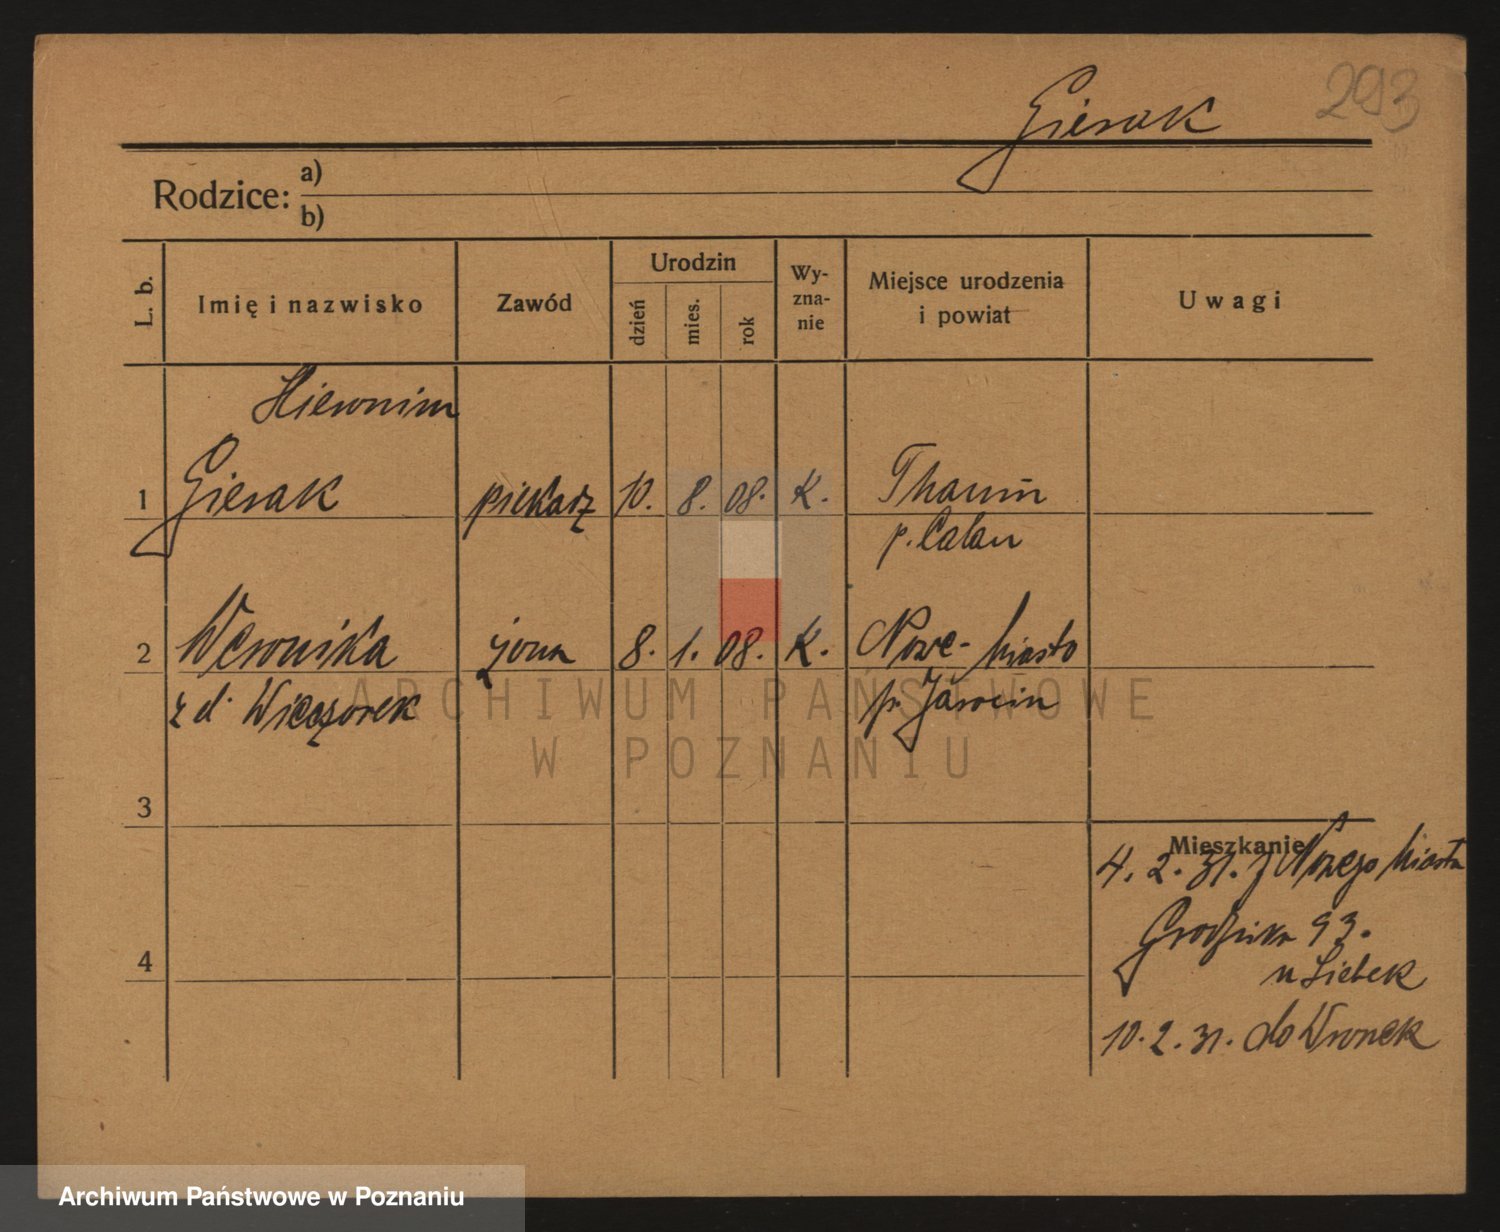 293
Gierak
Rodzice: a)
b)
L. b. Imię i nazwisko Zawód Urodzin dzień mies. rok Wyznanie Miejsce urodzenia i powiat Uwagi
Hieronim
1 Gierak piekarz 10. 8. 08. K.
p. Calau
2 Weronika żona 8. 1. 08. K. Nowe-Miasto
z d. Wieczorek p. Jarocin
ARCHIWUM PAŃSTWOWE
W POZNANIU
3
Mieszkanie
4. 2. 31. z Nowego Miasta
93.
4
u
10. 2. 31. do Wronek
Archiwum Państwowe w Poznaniu